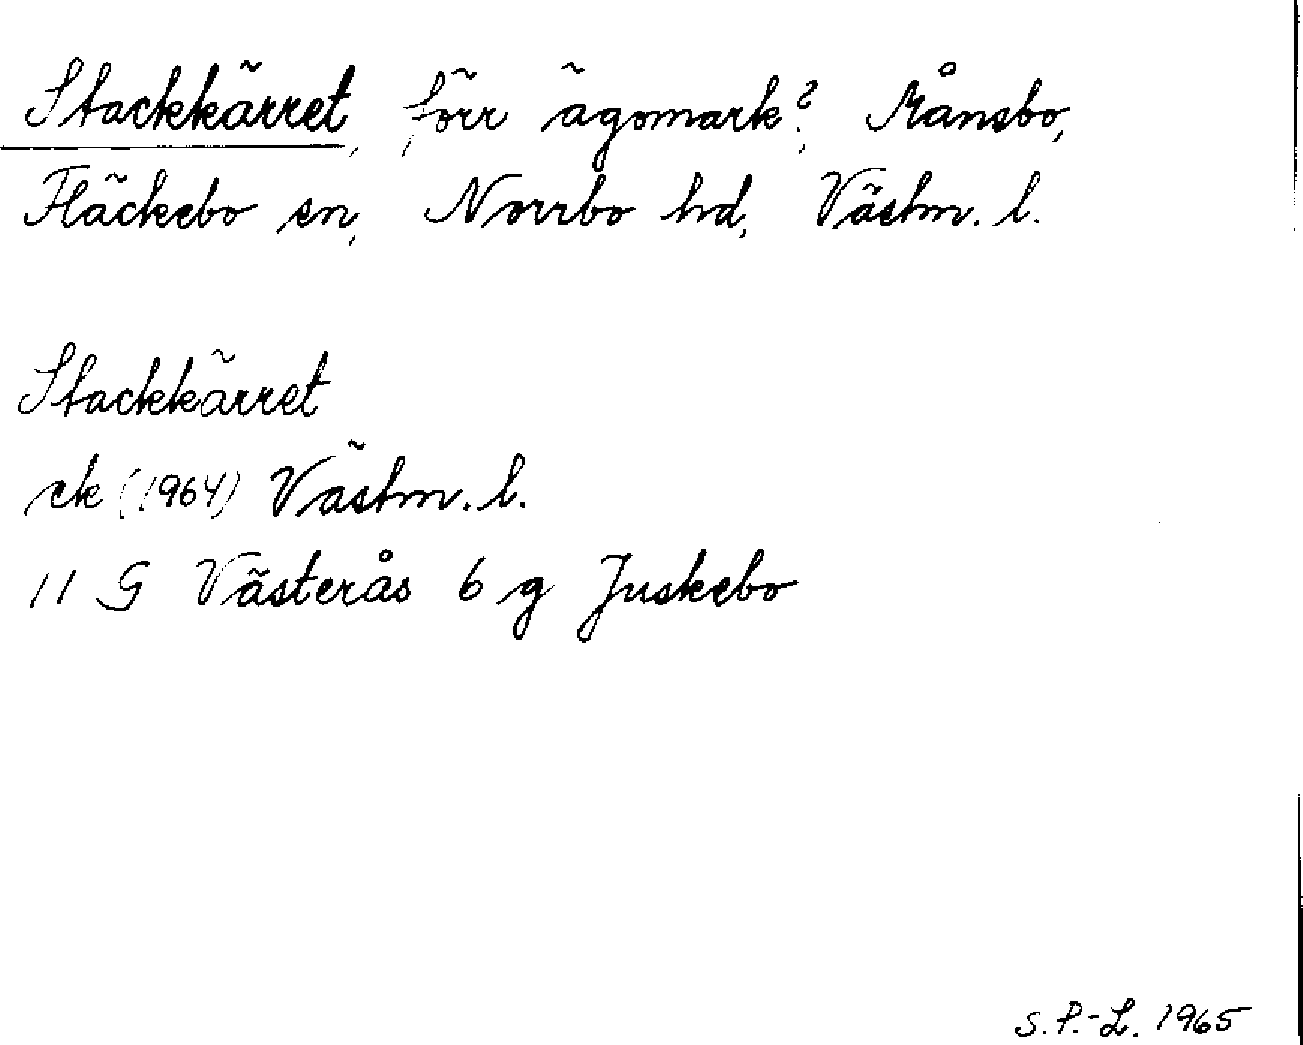 Stackkärret, förr ägomark?, Månsbo,
Fläckebo sn, Norrbo hd, Västm. l.
Stackkärret
ek (1964) Västm. l.
11 G Västerås 6 g Juskebo
S.P.-L. 1965